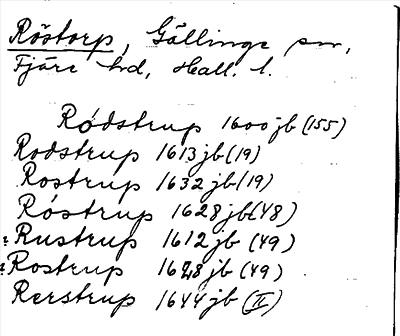 Röstorp, Gällinge sn,
Fjäre hd, Hall. l.
Rødstrup 1600 jb (155)
Rodstrup 1613 jb (19)
Rostrup 1632 jb (19)
Røstrup 1628 jb (48)
: Rustrup 1612 jb (49)
: Rostrup 1628 jb (49)
Rerstrup 1644 jb (II)